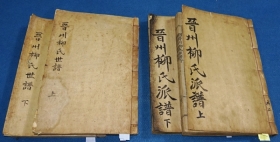 晋州柳氏世譜 下
晋州柳氏世譜 上
晋州柳氏派譜 下
晋州柳氏派譜 上